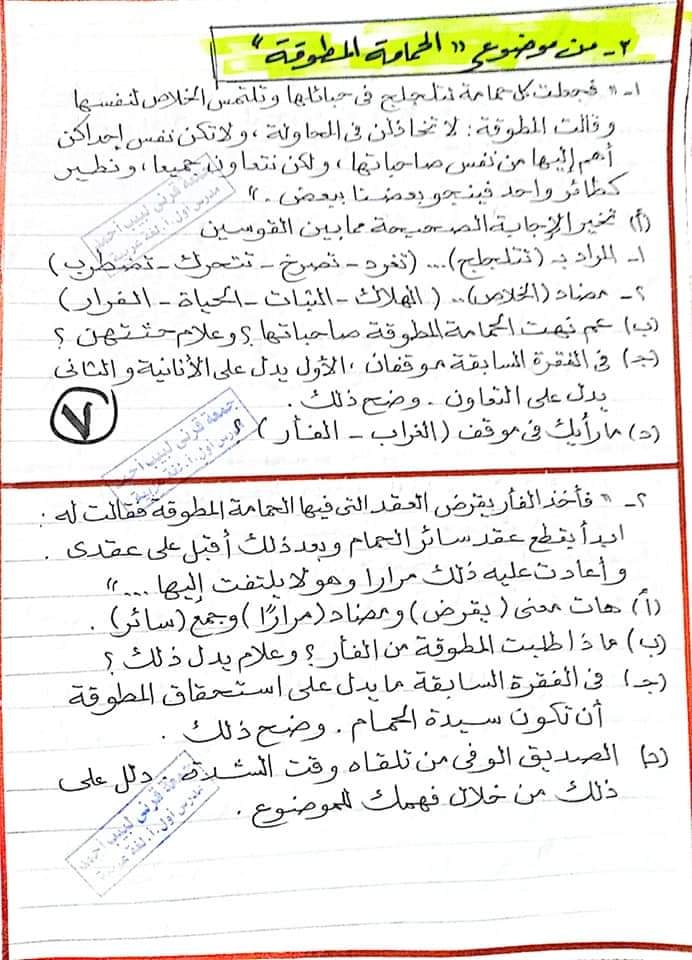 ٣- من موضوع " الحمامة المطوقة "
١- " فجعلت كل حمامة تتلجلج فى حبائلها وتلتمس الخلاص لنفسها
وقالت المطوقة : لا تخاذلن فى المحاولة ، ولا تكن نفس إحداكن
أهم إليها من نفس صاحباتها ، ولكن نتعاون جميعا ، ونطير
كطائر واحد فينجو بعضنا ببعض . "
(أ) تخير الإجابة الصحيحة مما بين القوسين
١- المراد بـ (تتلجلج) ... (تغرد - تصرخ - تتحرك - تضطرب)
٢- مضاد (الخلاص) .. (الهلاك - الثبات - الحياة - الفرار)
(ب) عم نهت الحمامة المطوقة صاحباتها ؟ وعلام حثتهن ؟
(جـ) فى الفقرة السابقة موقفان ، الأول يدل على الأنانية والثانى
يدل على التعاون . وضح ذلك .
(د) ما رأيك فى موقف (الغراب - الفأر) ؟
٧
٢- " فأخذ الفأر يقرض العقد التى فيها الحمامة المطوقة فقالت له :
ابدأ يقطع عقد سائر الحمام وبعد ذلك أقبل على عقدى .
وأعادت عليه ذلك مرارا وهو لا يلتفت إليها ... "
(أ) هات معنى (يقرض) ومضاد (مرارًا) وجمع (سائر) .
(ب) ماذا طلبت المطوقة من الفأر ؟ وعلام يدل ذلك ؟
(جـ) فى الفقرة السابقة ما يدل على استحقاق المطوقة
أن تكون سيدة الحمام . وضح ذلك .
(د) الصديق الوفى من تلقاه وقت الشدة . دلل على
ذلك من خلال فهمك للموضوع .
جمعة قرنى لبيب احمد
مدرس اول . أ . لغة عربية
جمعة قرنى لبيب احمد
مدرس اول . أ . لغة عربية
جمعة قرنى لبيب احمد
مدرس اول . أ . لغة عربية